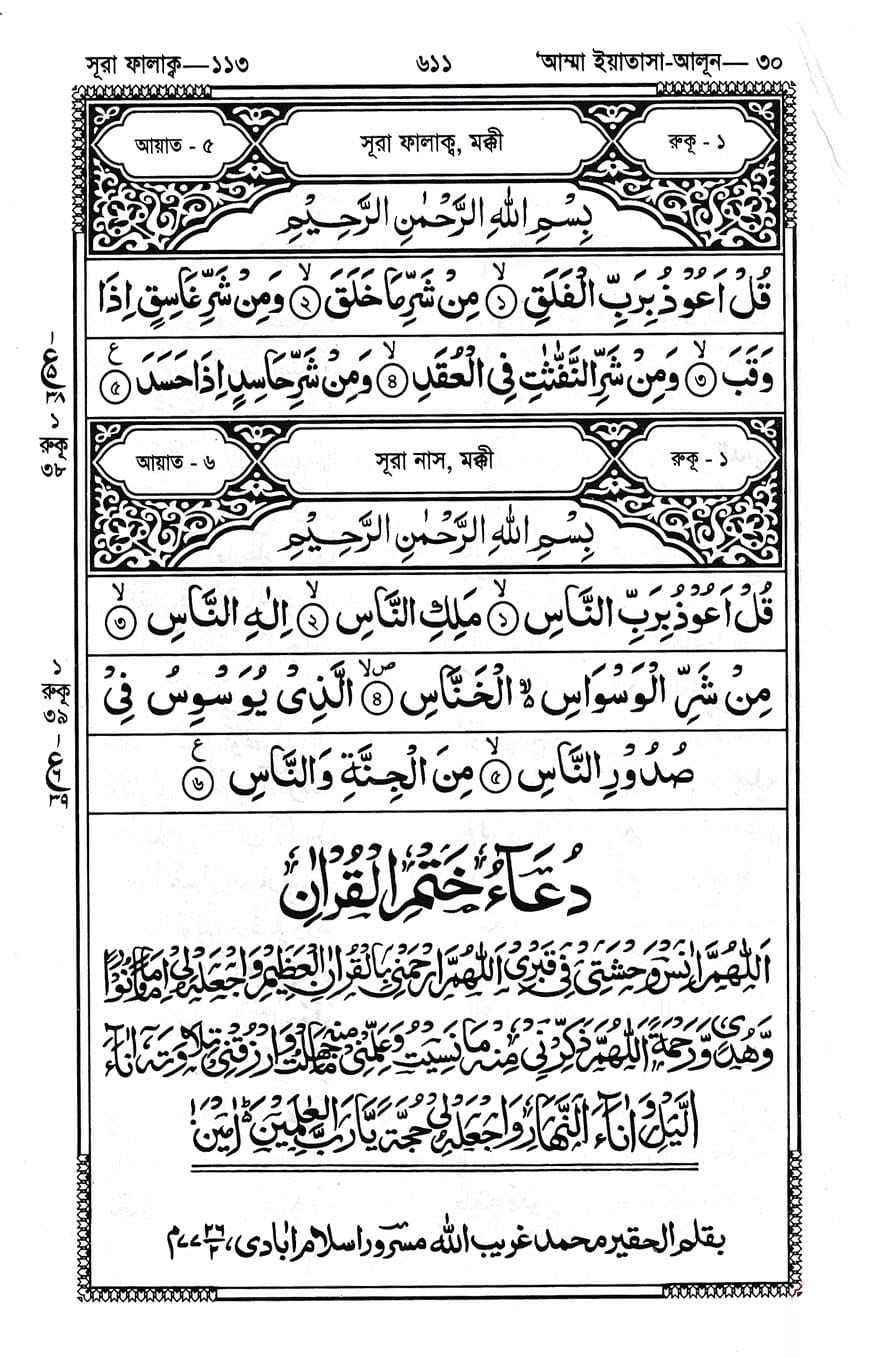 সূরা ফালাক্ব—১১৩ ৬১১ ‘আম্মা ইয়াতাসা-আলূন— ৩০
আয়াত - ৫ সূরা ফালাক্ব, মক্কী রুকূ - ১
بِسْمِ اللهِ الرَّحْمٰنِ الرَّحِيْمِ
قُلْ اَعُوْذُ بِرَبِّ الْفَلَقِ ۙ﴿১﴾ مِنْ شَرِّ مَا خَلَقَ ۙ﴿২﴾ وَمِنْ شَرِّ غَاسِقٍ اِذَا
وَقَبَ ۙ﴿৩﴾ وَمِنْ شَرِّ النَّفّٰثٰتِ فِى الْعُقَدِ ۙ﴿৪﴾ وَمِنْ شَرِّ حَاسِدٍ اِذَا حَسَدَ ﴿৫﴾ ع
১ রুকূ ৩৮
আয়াত - ৬ সূরা নাস, মক্কী রুকূ - ১
بِسْمِ اللهِ الرَّحْمٰنِ الرَّحِيْمِ
قُلْ اَعُوْذُ بِرَبِّ النَّاسِ ۙ﴿১﴾ مَلِكِ النَّاسِ ۙ﴿২﴾ اِلٰهِ النَّاسِ ۙ﴿৩﴾
مِنْ شَرِّ الْوَسْوَاسِ ۙ۬ الْخَنَّاسِ ﴿৪﴾ صلا الَّذِىْ يُوَسْوِسُ فِىْ
صُدُوْرِ النَّاسِ ۙ﴿৫﴾ مِنَ الْجِنَّةِ وَالنَّاسِ ﴿৬﴾ ع
১ রুকূ ৩৯
دُعَآءُ خَتْمِ الْقُرْاٰنِ
اَللّٰهُمَّ اٰنِسْ وَحْشَتِىْ فِىْ قَبْرِىْ اَللّٰهُمَّ ارْحَمْنِىْ بِالْقُرْاٰنِ الْعَظِيْمِ وَاجْعَلْهُ لِىْ اِمَامًا وَّنُوْرًا
وَّهُدًى وَّرَحْمَةً اَللّٰهُمَّ ذَكِّرْنِىْ مِنْهُ مَا نَسِيْتُ وَعَلِّمْنِىْ مِنْهُ مَا جَهِلْتُ وَارْزُقْنِىْ تِلَاوَتَهٗ اٰنَآءَ
الَّيْلِ وَاٰنَآءَ النَّهَارِ وَاجْعَلْهُ لِىْ حُجَّةً يَّا رَبَّ الْعٰلَمِيْنَ ؕ اٰمِيْنَ
بقلم الحقير محمد غريب الله مسرور اسلام ابادى،